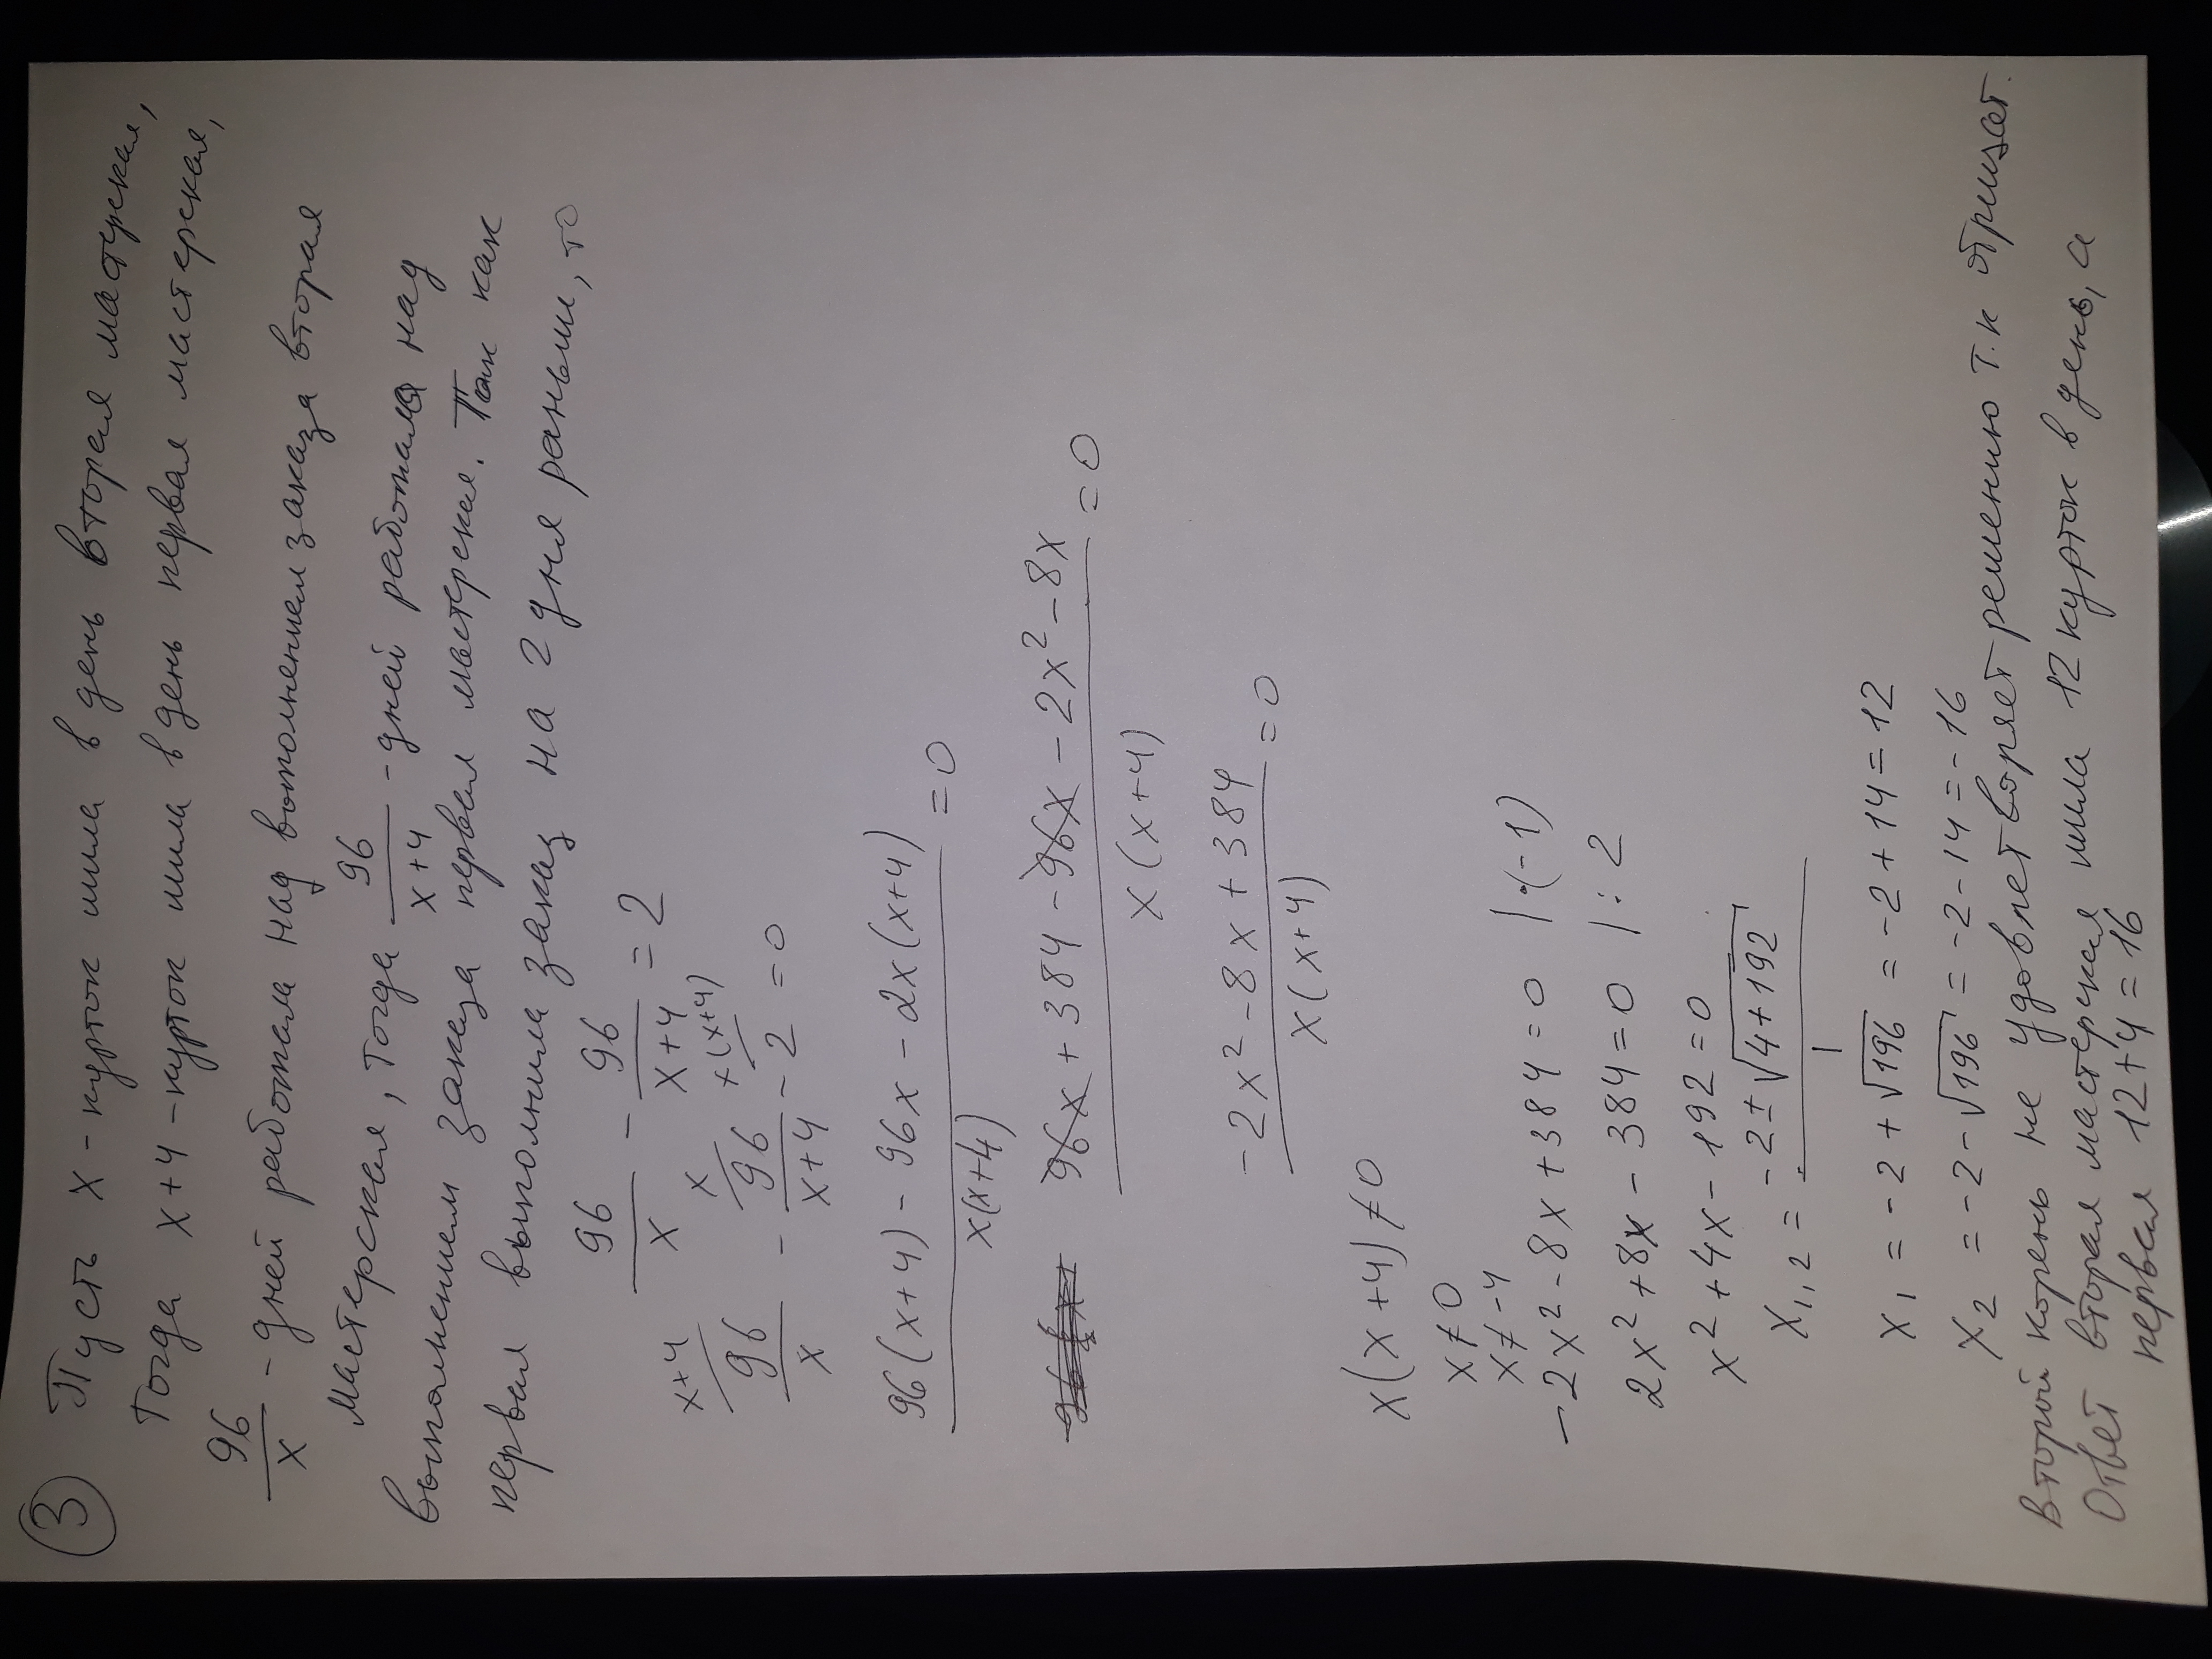 ③ Пусть x - курток шила в день вторая мастерская,
Тогда x+4 - курток шила в день первая мастерская,
96/x - дней работала над выполнением заказа вторая
мастерская, тогда 96/(x+4) - дней работала над
выполнением заказа первая мастерская. Так как
первая выполнила заказ на 2 дня раньше, то
96/x - 96/(x+4) = 2
x+4/ x/ x(x+4)/
96/x - 96/(x+4) - 2 = 0
(96(x+4) - 96x - 2x(x+4))/(x(x+4)) = 0
(96x + 384 - 96x - 2x² - 8x)/(x(x+4)) = 0
(-2x² - 8x + 384)/(x(x+4)) = 0
x(x+4) ≠ 0
x ≠ 0
x ≠ -4
-2x² - 8x + 384 = 0 | ·(-1)
2x² + 8x - 384 = 0 | : 2
x² + 4x - 192 = 0
x₁,₂ = (-2 ± √(4+192))/1
x₁ = -2 + √196 = -2 + 14 = 12
x₂ = -2 - √196 = -2 - 14 = -16
Второй корень не удовлетворяет решению т.к отрицат.
Ответ вторая мастерская шила 12 курток в день, а
первая 12+4 = 16